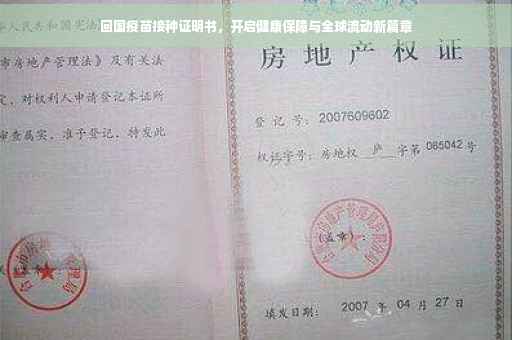 回国疫苗接种证明书，开启健康保障与全球流动新篇章
人民共和国宪法
市房地产管理法》及有关
定，对权利人申请登记本证所
审查属实，准予登记，特发此
房地产权证
登记号：2007609602
权证字号：房地权 庐 字第 085042 号
(盖章)：
填发日期：2007 年 04 月 27 日